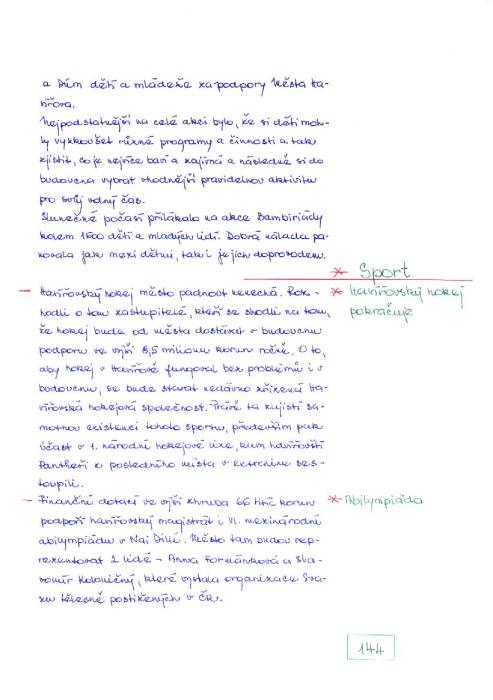 a Dům dětí a mládeže za podpory Města Ha-
vířova.
Nejpodstatnější na celé akci bylo, že si děti moh-
ly vyzkoušet různé programy a činnosti a tak
zjistit, co je nejvíce baví a zajímá a následně si do
budoucna vybrat vhodnější pravidelnou aktivitu
pro svůj volný čas.
Slunečné počasí přilákalo na akce Bambiriády
kolem 1500 dětí a mladých lidí. Dobrá nálada pa-
novala jak mezi dětmi, tak i jejich doprovodem.
* Sport
– Havířovský hokej město padnout nenechá. Roz-
* Havířovský hokej
hodli o tom zastupitelé, kteří se shodli na tom,
pokračuje
že hokej bude od města dostávat v budoucnu
podporu ve výši 6,5 milionu korun ročně. O to,
aby hokej v Havířově fungoval bez problémů i v
budoucnu, se bude starat nedávno zřízená Ha-
vířovská hokejová společnost. Právě ta zajistí sa-
motnou existenci tohoto sportu, především pak
účast v 1. národní hokejové lize, kam havířovští
Pantheři z posledního místa v extralize ses-
toupili.
– Finanční dotací ve výši zhruba 66 tisíc korun
* Abilympiáda
podpoří havířovský magistrát i VI. mezinárodní
abilympiádu v Naí Dillí. Město tam budou rep-
rezentovat 2 lidé – Anna Formánková a Sla-
vomír Koloničný, které vyslala organizace Sva-
zu tělesně postižených v ČR.
144